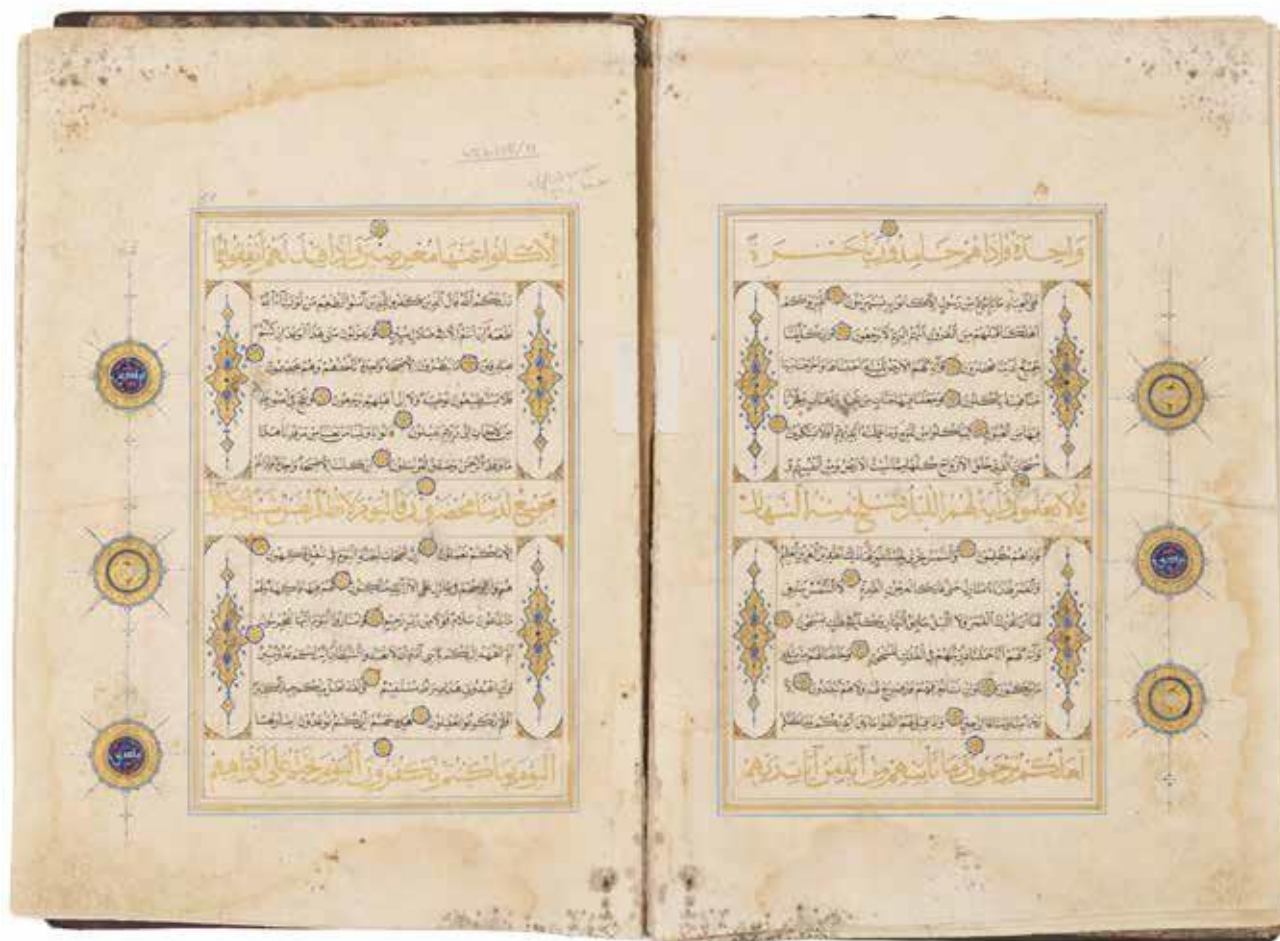 واحدة فإذا هم خامدون يا حسرة
على العباد ما يأتيهم من رسول إلا كانوا به يستهزئون ألم يروا كم
أهلكنا قبلهم من القرون أنهم إليهم لا يرجعون وإن كل لما
جميع لدينا محضرون وآية لهم الأرض الميتة أحييناها وأخرجنا
منها حبا فمنه يأكلون وجعلنا فيها جنات من نخيل وأعناب وفجرنا
فيها من العيون ليأكلوا من ثمره وما عملته أيديهم أفلا يشكرون
سبحان الذي خلق الأزواج كلها مما تنبت الأرض ومن أنفسهم و
مما لا يعلمون وآية لهم الليل نسلخ منه النهار
فإذا هم مظلمون والشمس تجري لمستقر لها ذلك تقدير العزيز العليم
والقمر قدرناه منازل حتى عاد كالعرجون القديم لا الشمس ينبغي
لها أن تدرك القمر ولا الليل سابق النهار وكل في فلك يسبحون
وآية لهم أنا حملنا ذريتهم في الفلك المشحون وخلقنا لهم من مثله
ما يركبون وإن نشأ نغرقهم فلا صريخ لهم ولا هم ينقذون إلا
رحمة منا ومتاعا إلى حين وإذا قيل لهم اتقوا ما بين أيديكم وما خلفكم
لعلكم ترحمون وما تأتيهم من آية من آيات ربهم
إلا كانوا عنها معرضين وإذا قيل لهم أنفقوا مما
رزقكم الله قال الذين كفروا للذين آمنوا أنطعم من لو يشاء الله
أطعمه إن أنتم إلا في ضلال مبين ويقولون متى هذا الوعد إن كنتم
صادقين ما ينظرون إلا صيحة واحدة تأخذهم وهم يخصمون
فلا يستطيعون توصية ولا إلى أهلهم يرجعون ونفخ في الصور فإذا هم
من الأجداث إلى ربهم ينسلون قالوا يا ويلنا من بعثنا من مرقدنا هذا
ما وعد الرحمن وصدق المرسلون إن كانت إلا صيحة واحدة فإذا هم
جميع لدينا محضرون فاليوم لا تظلم نفس شيئا ولا تجزون
إلا ما كنتم تعملون إن أصحاب الجنة اليوم في شغل فاكهون
هم وأزواجهم في ظلال على الأرائك متكئون لهم فيها فاكهة ولهم
ما يدعون سلام قولا من رب رحيم وامتازوا اليوم أيها المجرمون
ألم أعهد إليكم يا بني آدم أن لا تعبدوا الشيطان إنه لكم عدو مبين
وأن اعبدوني هذا صراط مستقيم ولقد أضل منكم جبلا كثيرا
أفلم تكونوا تعقلون هذه جهنم التي كنتم توعدون اصلوها
اليوم بما كنتم تكفرون اليوم نختم على أفواههم